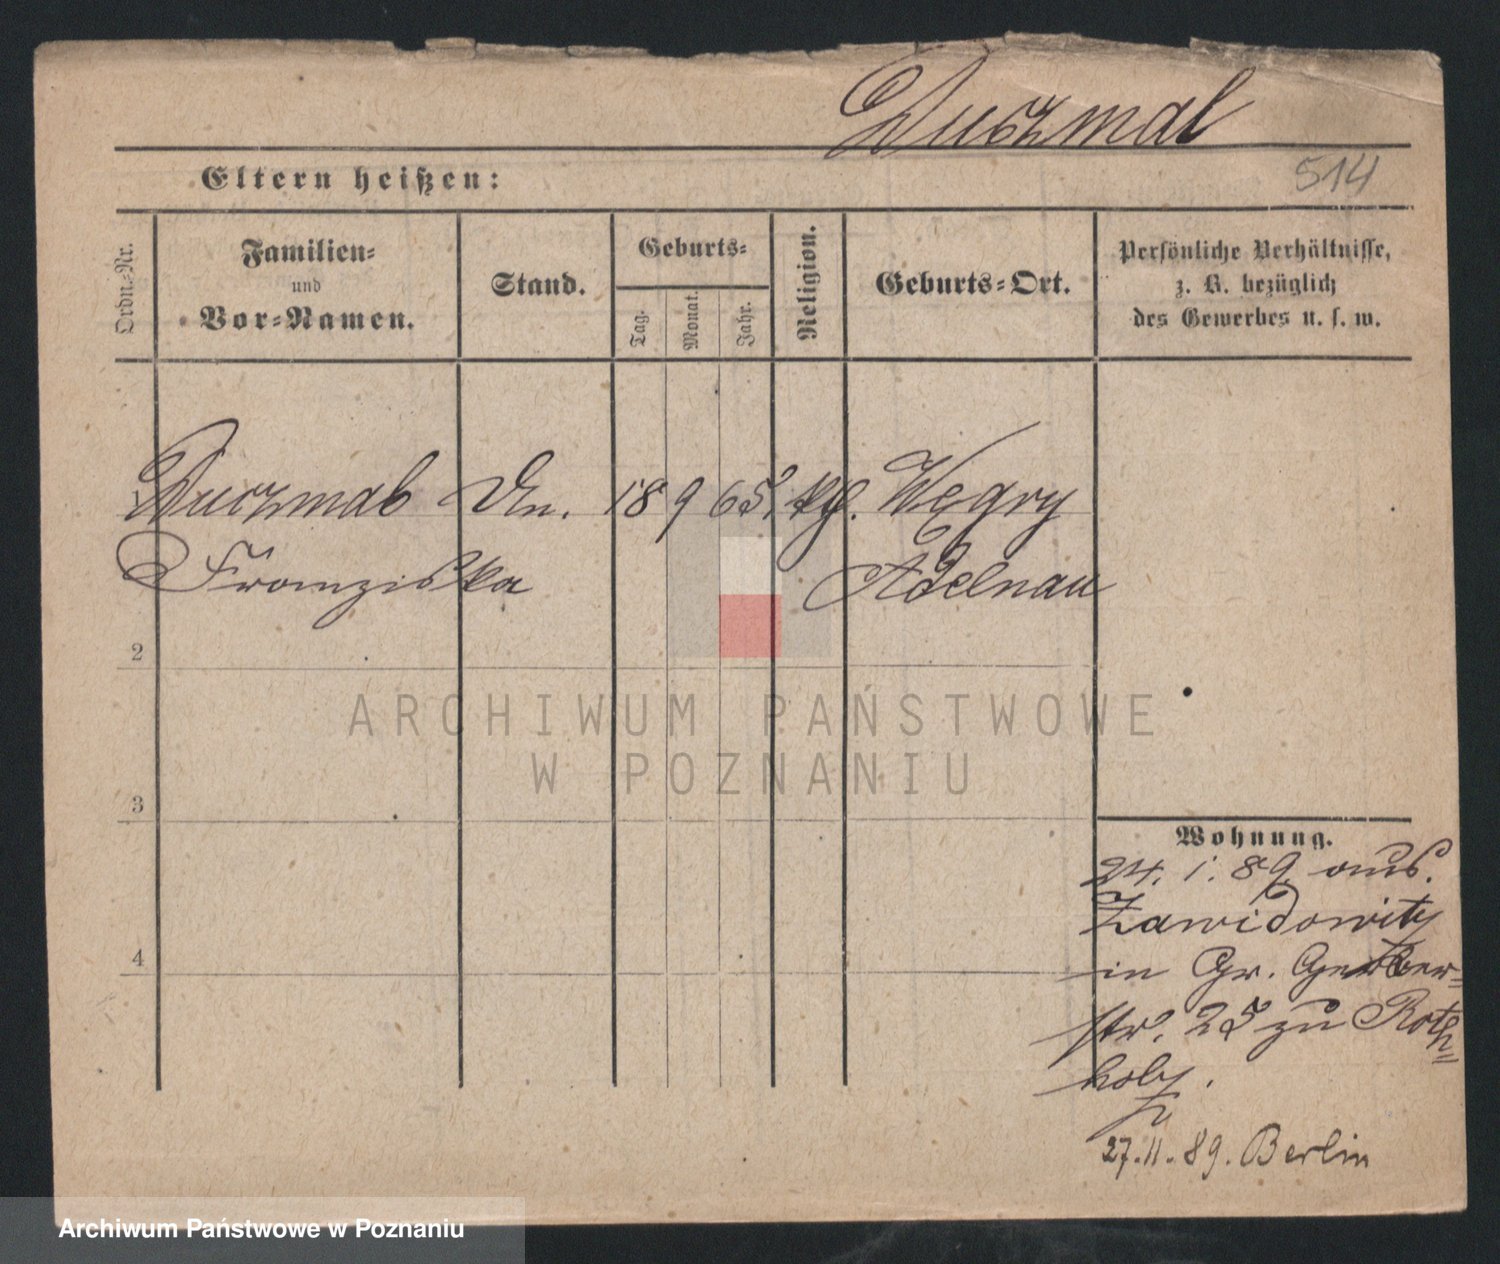 Duczmal
Eltern heißen:
514
Ordn.-Nr.
Familien-
und
Vor-Namen.
Stand.
Geburts-
Tag.
Monat.
Jahr.
Religion.
Geburts-Ort.
Persönliche Verhältnisse,
z. B. bezüglich
des Gewerbes u. s. w.
1 Duczmal Dn. 18 9 65. kth. Wegry
Franziska Adelnau
2
3
4
Wohnung.
24. 1. 89 aus
Zawidowitz
in Gr. Gerber-
str. 25 zu Roth-
holz.
27.11.89. Berlin
ARCHIWUM PAŃSTWOWE
W POZNANIU
Archiwum Państwowe w Poznaniu